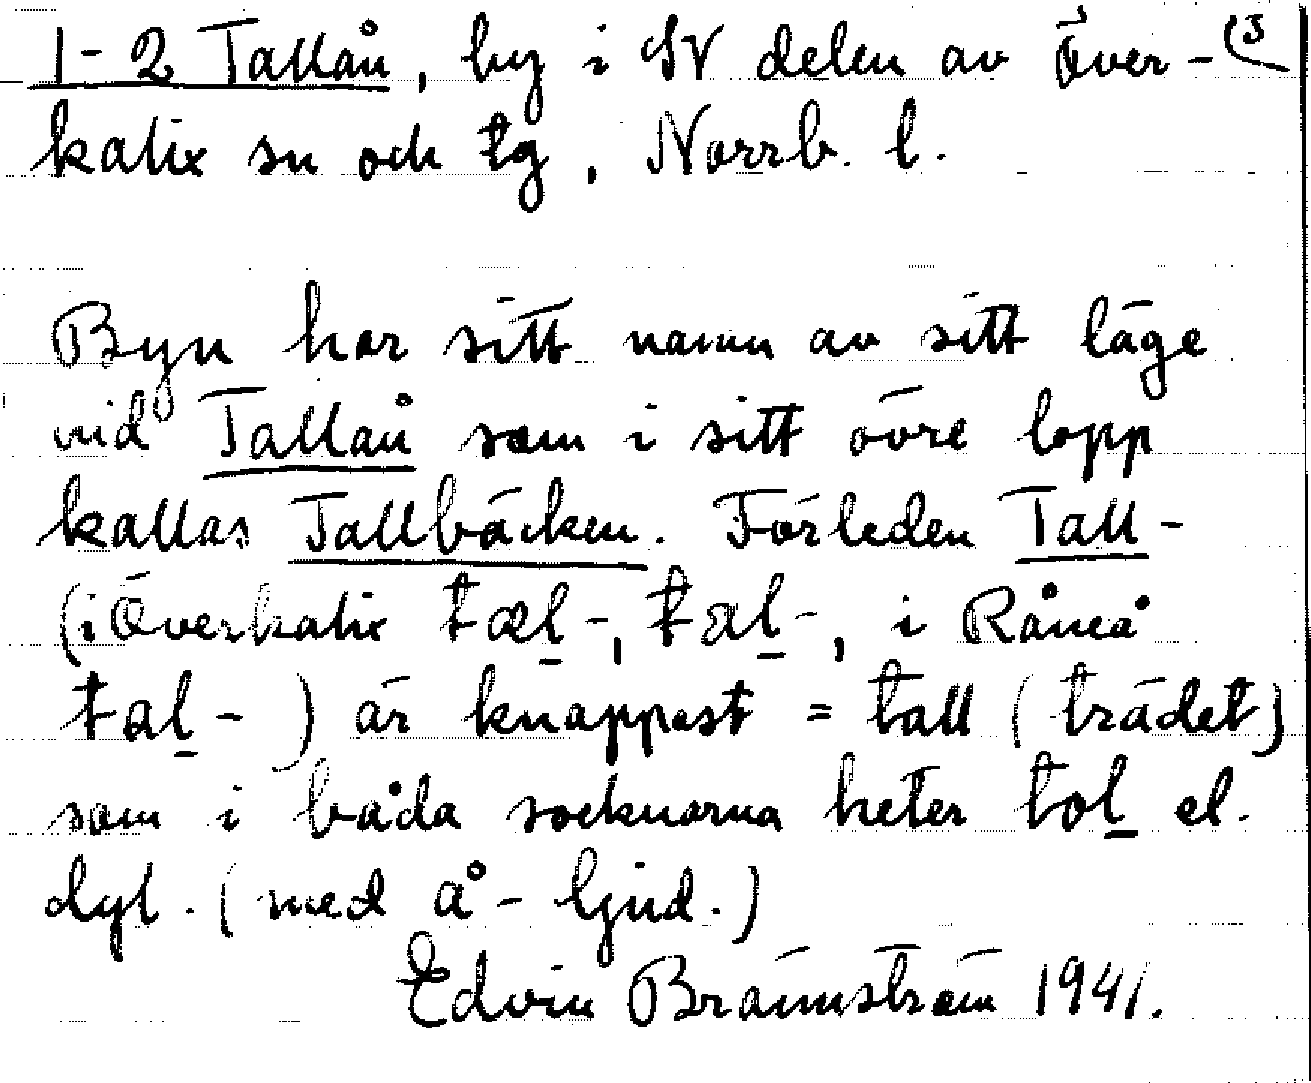 1-2 Tallån, by i SV delen av Över- (3
kalix sn och tg, Norrb. l.
Byn har sitt namn av sitt läge
vid Tallån som i sitt övre lopp
kallas Tallbäcken. Förleden Tall-
(i Överkalix tæl-, tal-, i Råneå
tal-) är knappast = tall (trädet)
som i båda socknarna heter tol el.
dyl. (med å-ljud.)
Edvin Brännström 1941.